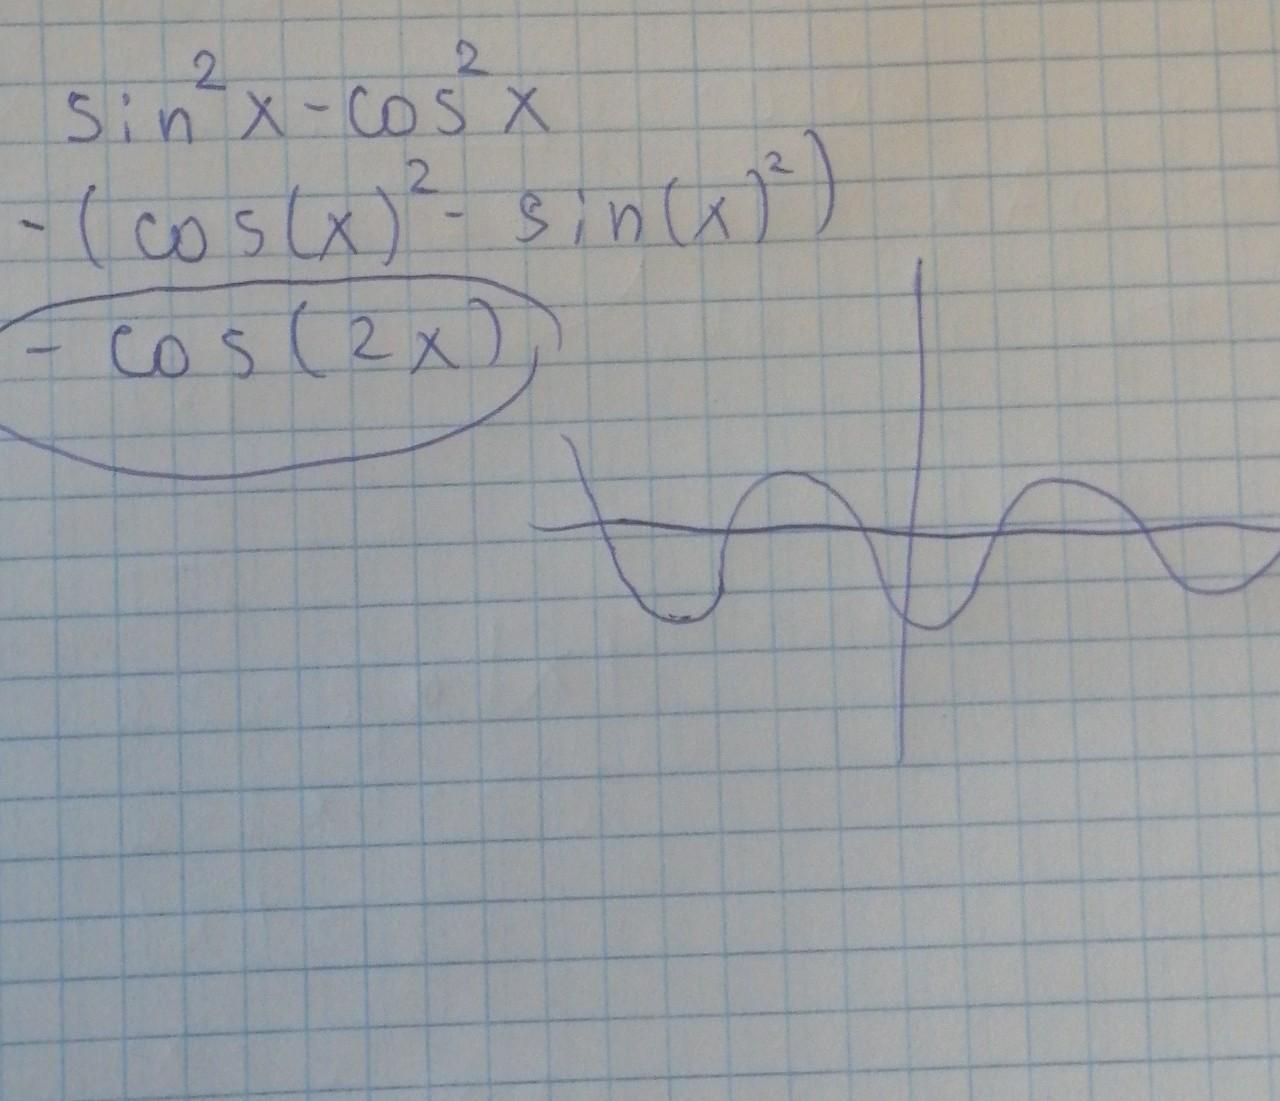 sin²x-cos²x
-(cos(x)²- sin(x)²)
- cos(2x)